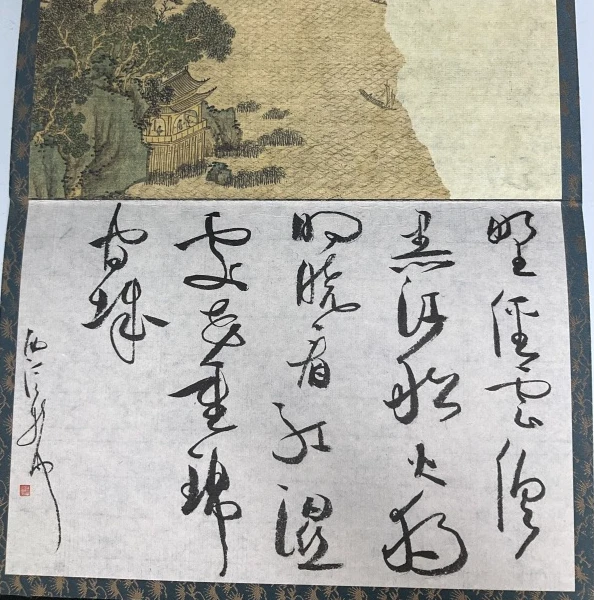 野徑雲俱
黑江船火獨
明曉看紅濕
處花重錦
官城